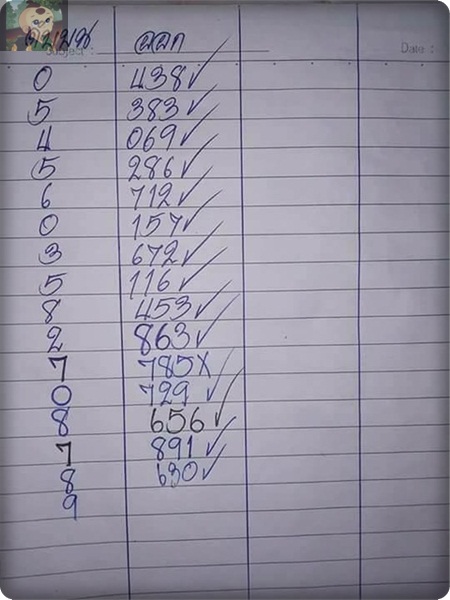 ดับบน ออก
Subject : Date :
0 438✓
5 383✓
4 069✓
5 286✓
6 712✓
0 157✓
3 672✓
5 116✓
8 453✓
2 863✓
7 785X
0 729✓
8 656✓
7 891✓
8 630✓
9